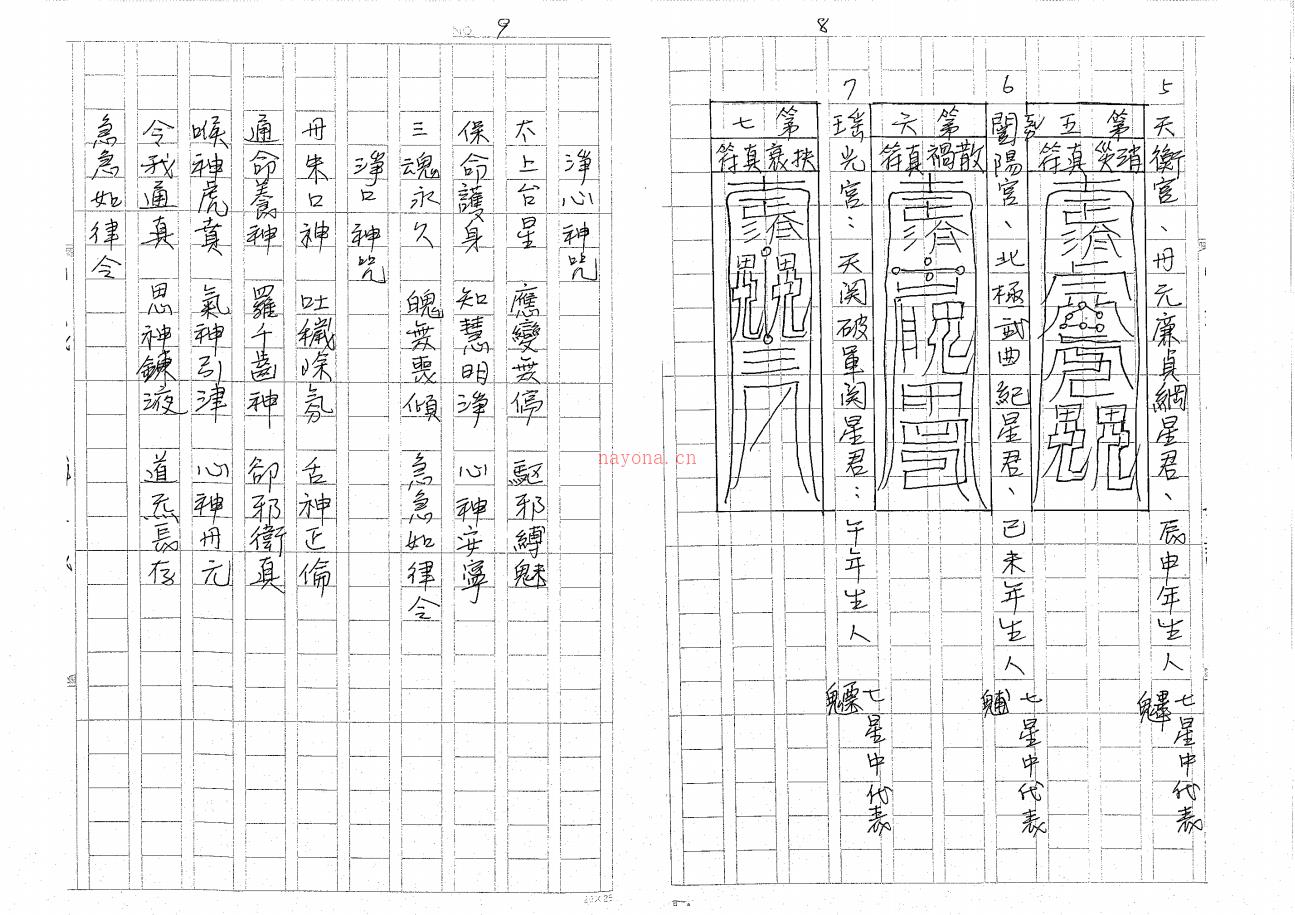 8
5 天衡宮、丹元廉貞綱星君、辰申年生人 七星中代表
第五
消災真符
6 闓陽宮、北極武曲紀星君、已未年生人 七星中代表魓
第六
散禍真符
7 瑤光宮：天関破軍関星君：午年生人 七星中代表魒
第七
扶衰真符
NO. 9
淨心神咒
太上台星 應變無停 驅邪縛魅
保命護身 知慧明淨 心神安寧
三魂永久 魄無喪傾 急急如律令
淨口神咒
丹朱口神 吐穢除氛 舌神正倫
通命養神 羅千齒神 卻邪衛真
喉神虎賁 氣神引津 心神丹元
令我通真 思神鍊液 道炁長存
急急如律令
nayona.cn